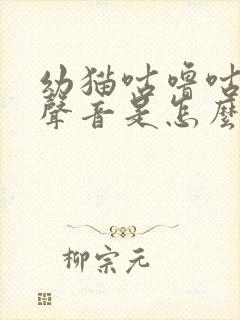 幼猫咕噜咕
聲音是怎麼
柳宗元